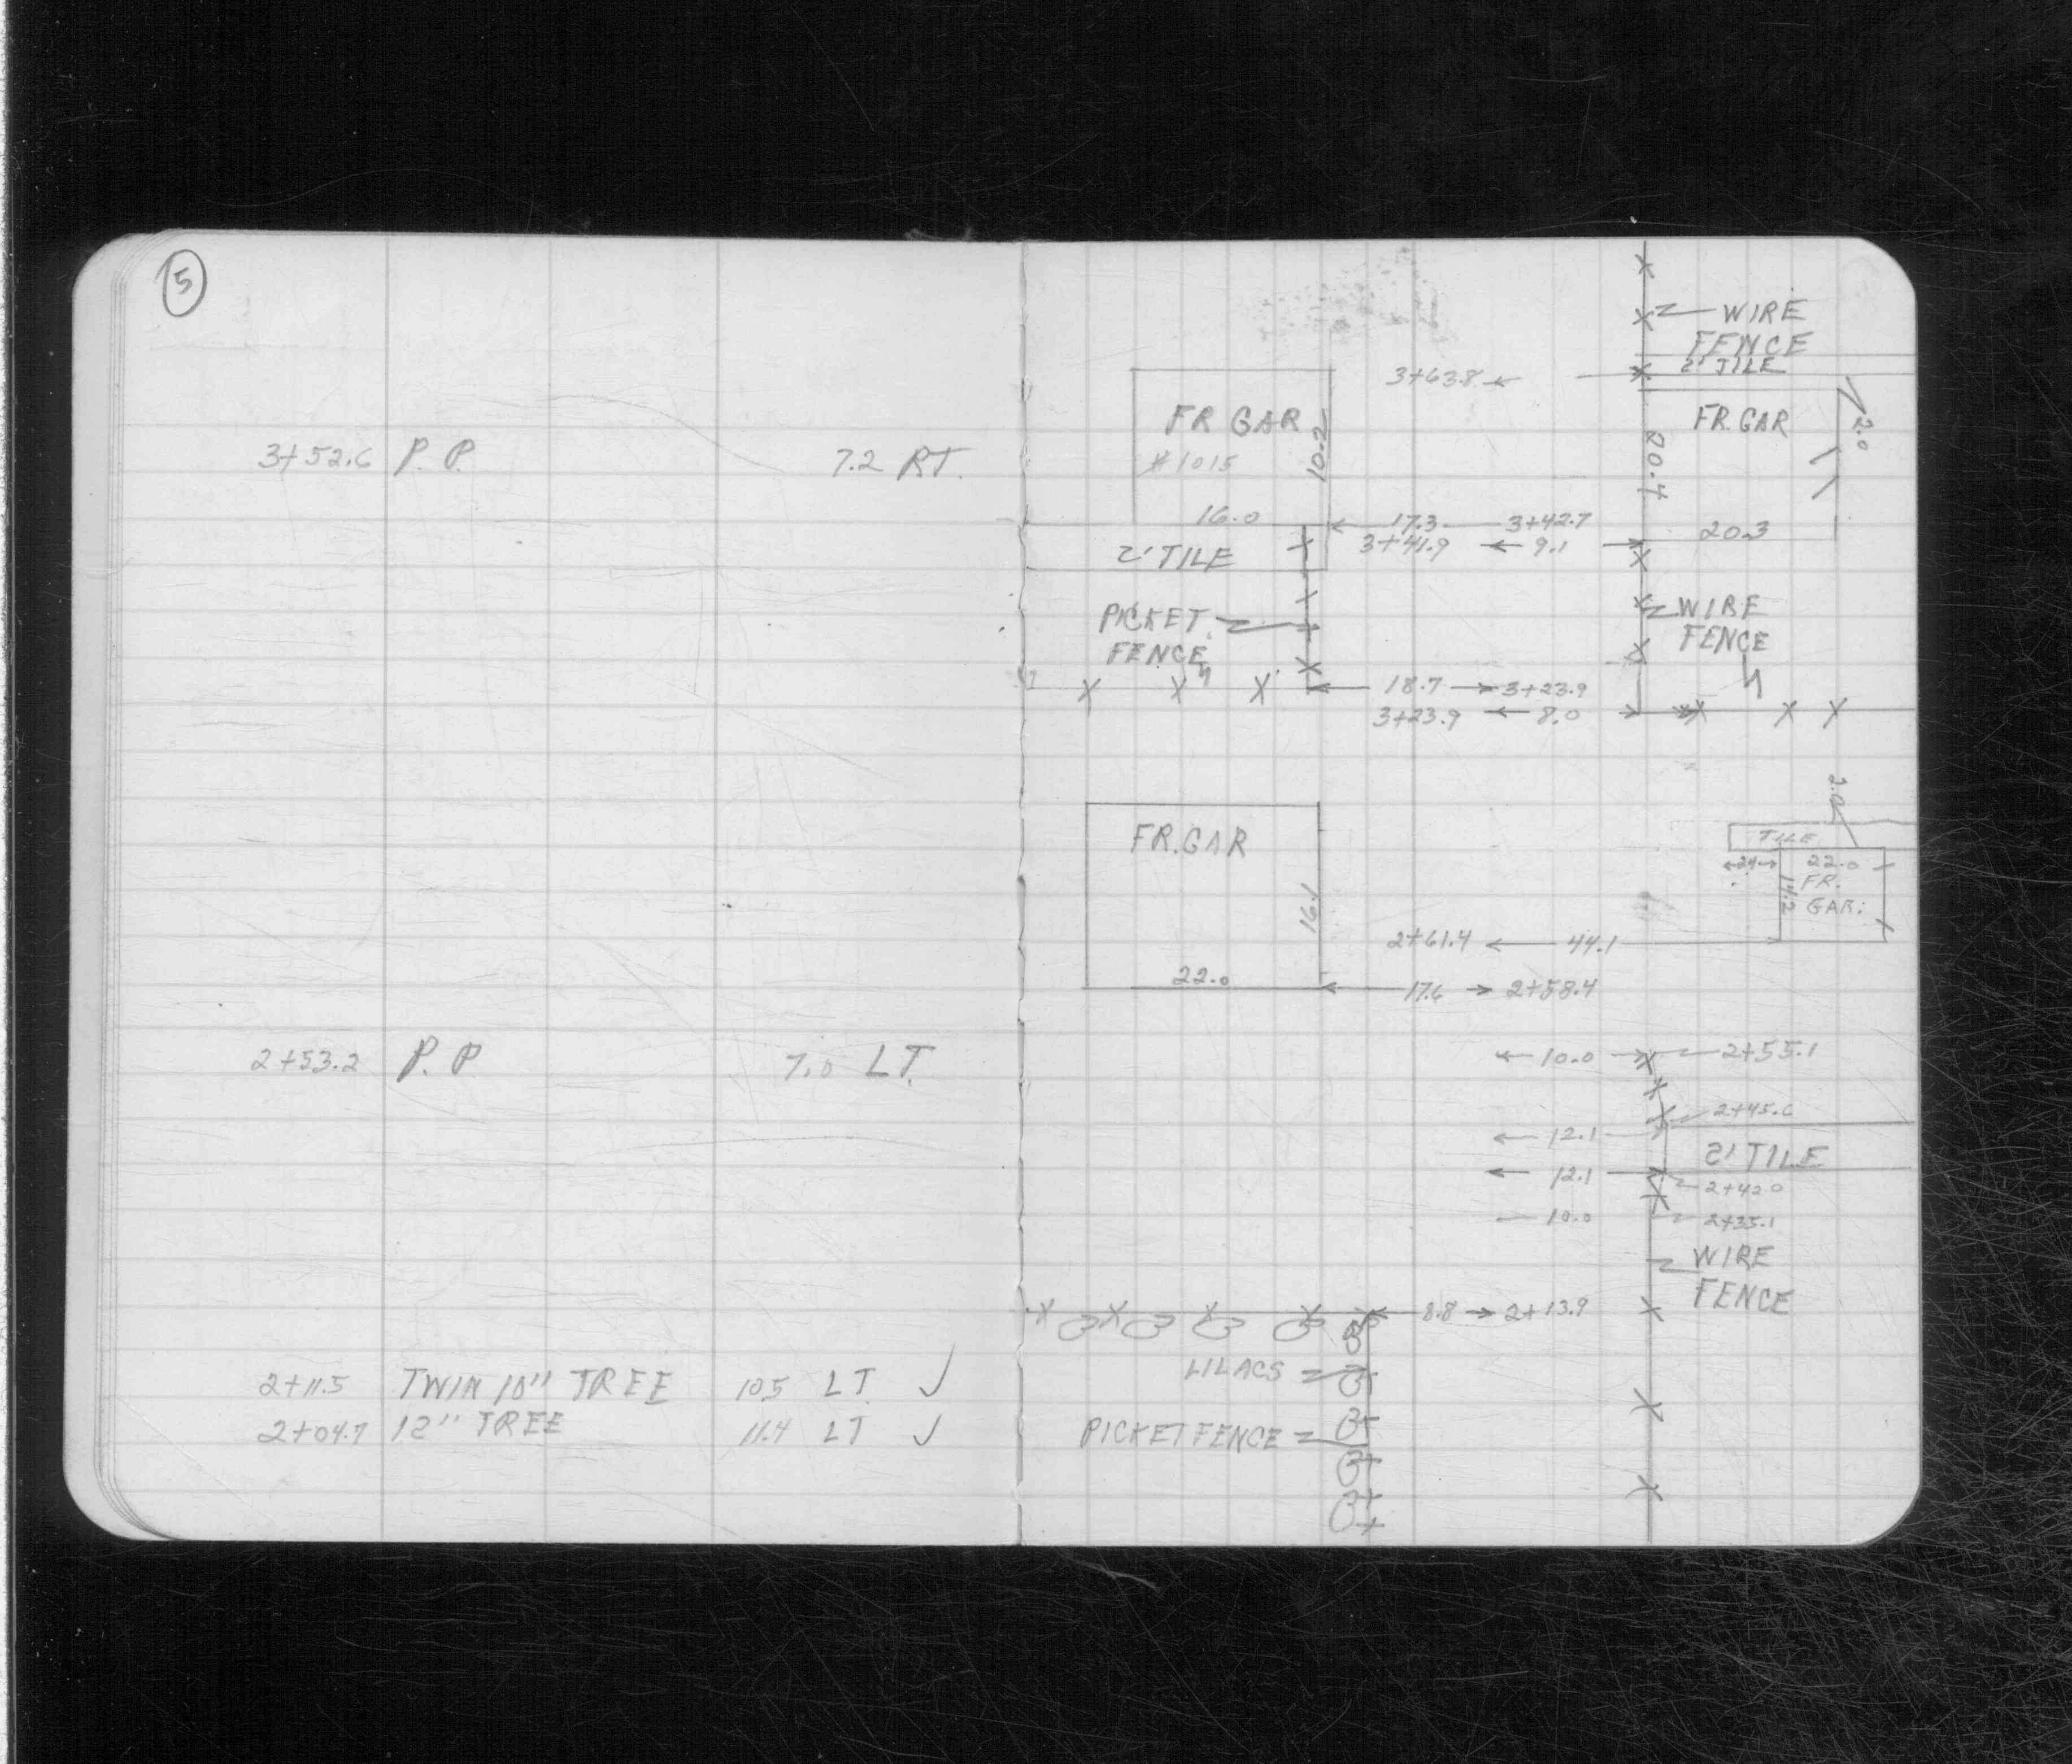 5
3+52.6 P.P. 7.2 RT.
2+53.2 P.P 7.0 LT.
2+11.5 TWIN 10" TREE 10.5 LT. ✓
2+04.7 12" TREE 11.4 LT ✓
WIRE
FENCE
2' TILE
3+63.8
FR GAR
#1015
10.2
16.0
FR. GAR
20.4
2.0
20.3
17.3 3+42.7
3+41.9 9.1
2' TILE
PICKET
FENCE
WIRE
FENCE
18.7 3+23.9
3+23.9 8.0
FR. GAR
16.1
22.0
2.0
TILE
24 22.0
FR.
GAR.
14.2
2+61.4 44.1
17.6 2+58.4
10.0 2+55.1
2+45.6
12.1
2' TILE
12.1
2+42.0
10.0 2+35.1
WIRE
FENCE
8.8 2+13.9
LILACS
PICKET FENCE